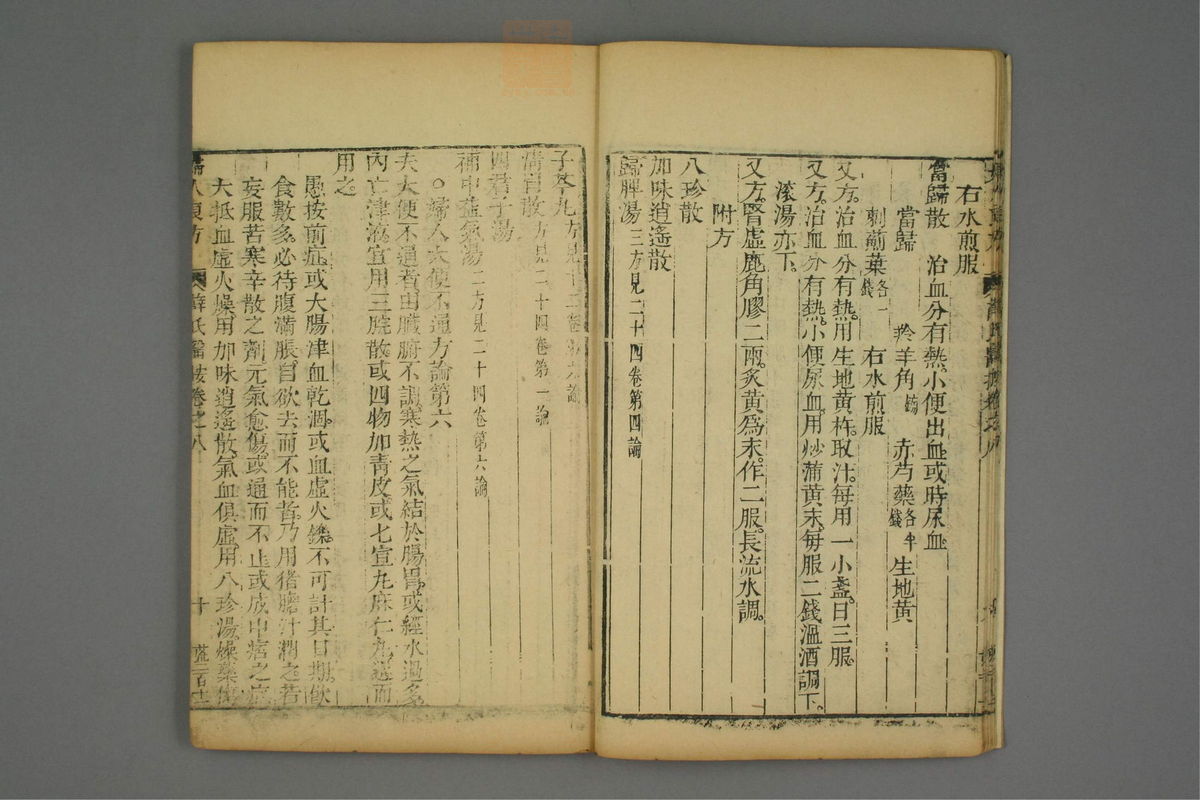 右水煎服
當歸散　治血分有熱小便出血或時尿血
當歸　羚羊角鎊　赤芍藥各半錢　生地黃
刺薊葉各一錢　右水煎服
又方。治血分有熱。用生地黃杵取汁。每用一小盞。日三服。
又方。治血分有熱。小便尿血。用炒蒲黃末。每服二錢溫酒調下。
滾湯亦下。
又方。腎虛鹿角膠二兩。炙黃爲末。作二服。長流水調。
附方
八珍散
加味逍遙散
歸脾湯三方見二十四卷第四論
子芩丸
清胃散方見二十四卷第一論
四君子湯
補中益氣湯二方見二十四卷第六論
○婦人大便不通方論第六
夫大便不通者。由臟腑不調。寒熱之氣結於腸胃。或經水過多。
內亡津液。宜用三脘散。或四物加青皮。或七宣丸麻仁丸選而
用之。
愚按前症。或大腸津血乾涸。或血虛火爍。不可計其日期。飲
食數多。必待腹滿脹。自欲去而不能者。乃用猪膽汁潤之。若
妄服苦寒辛散之劑。元氣愈傷。或通而不止。或成中痞之症。
大抵血虛火燥用加味逍遙散。氣血俱虛用八珍湯。燥藥
人良方　薛氏醫按卷之八　十